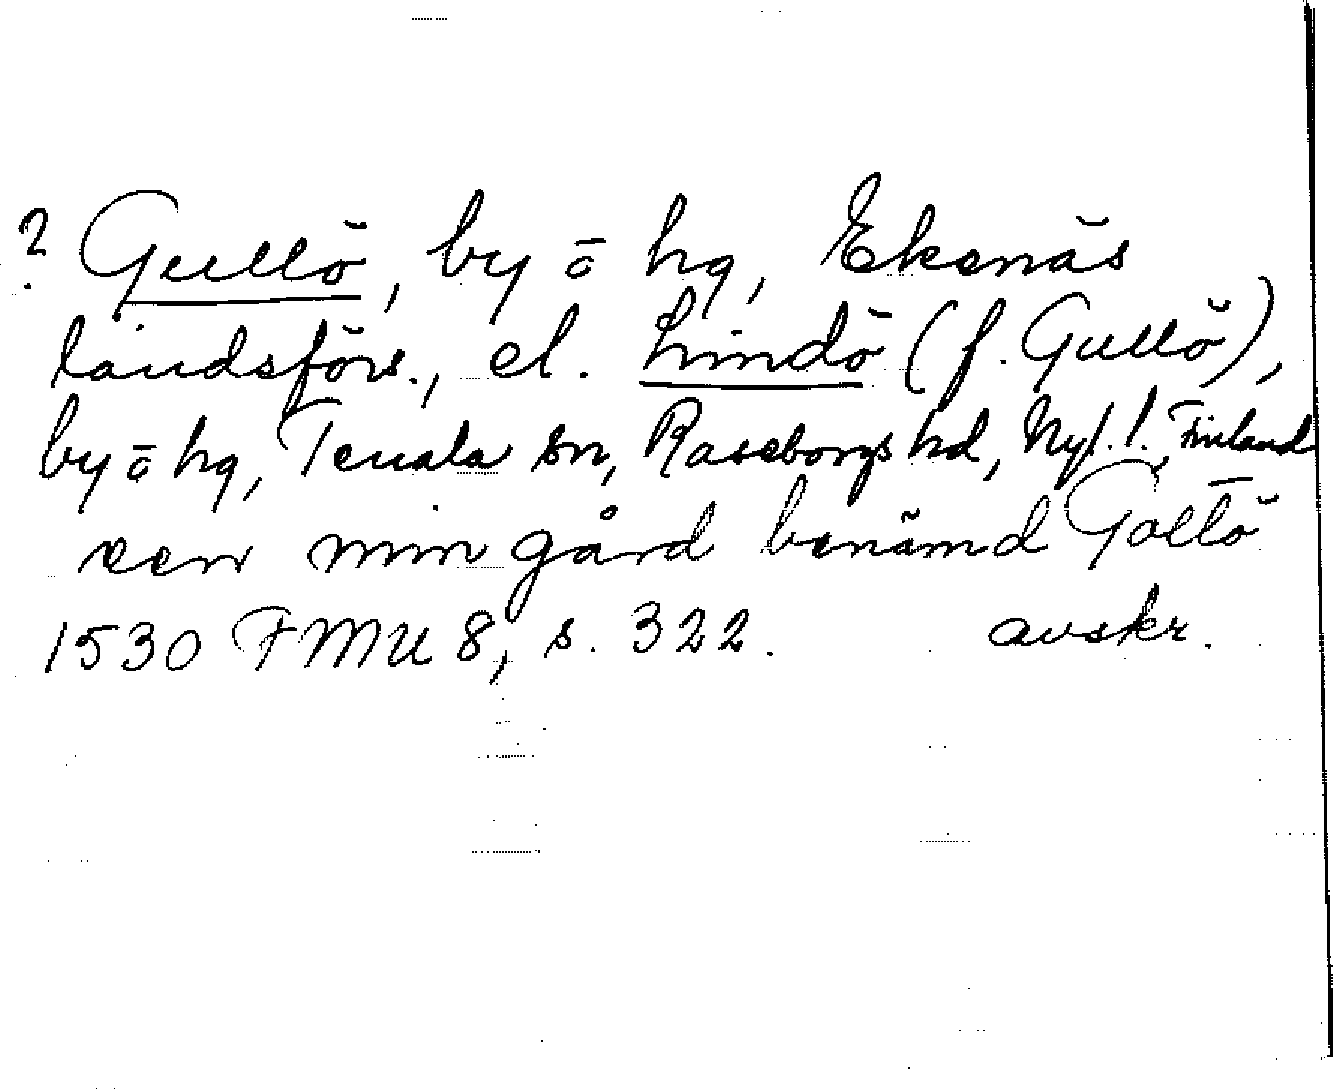 ? Gullö, by o hg, Ekenäs
landsförs., el. Lindö (f. Gullö),
by o hg, Tenala sn, Raseborgs hd, Nyl. l., Finland
een min gård benämd Goltö
1530 FMU 8, s. 322. avskr.